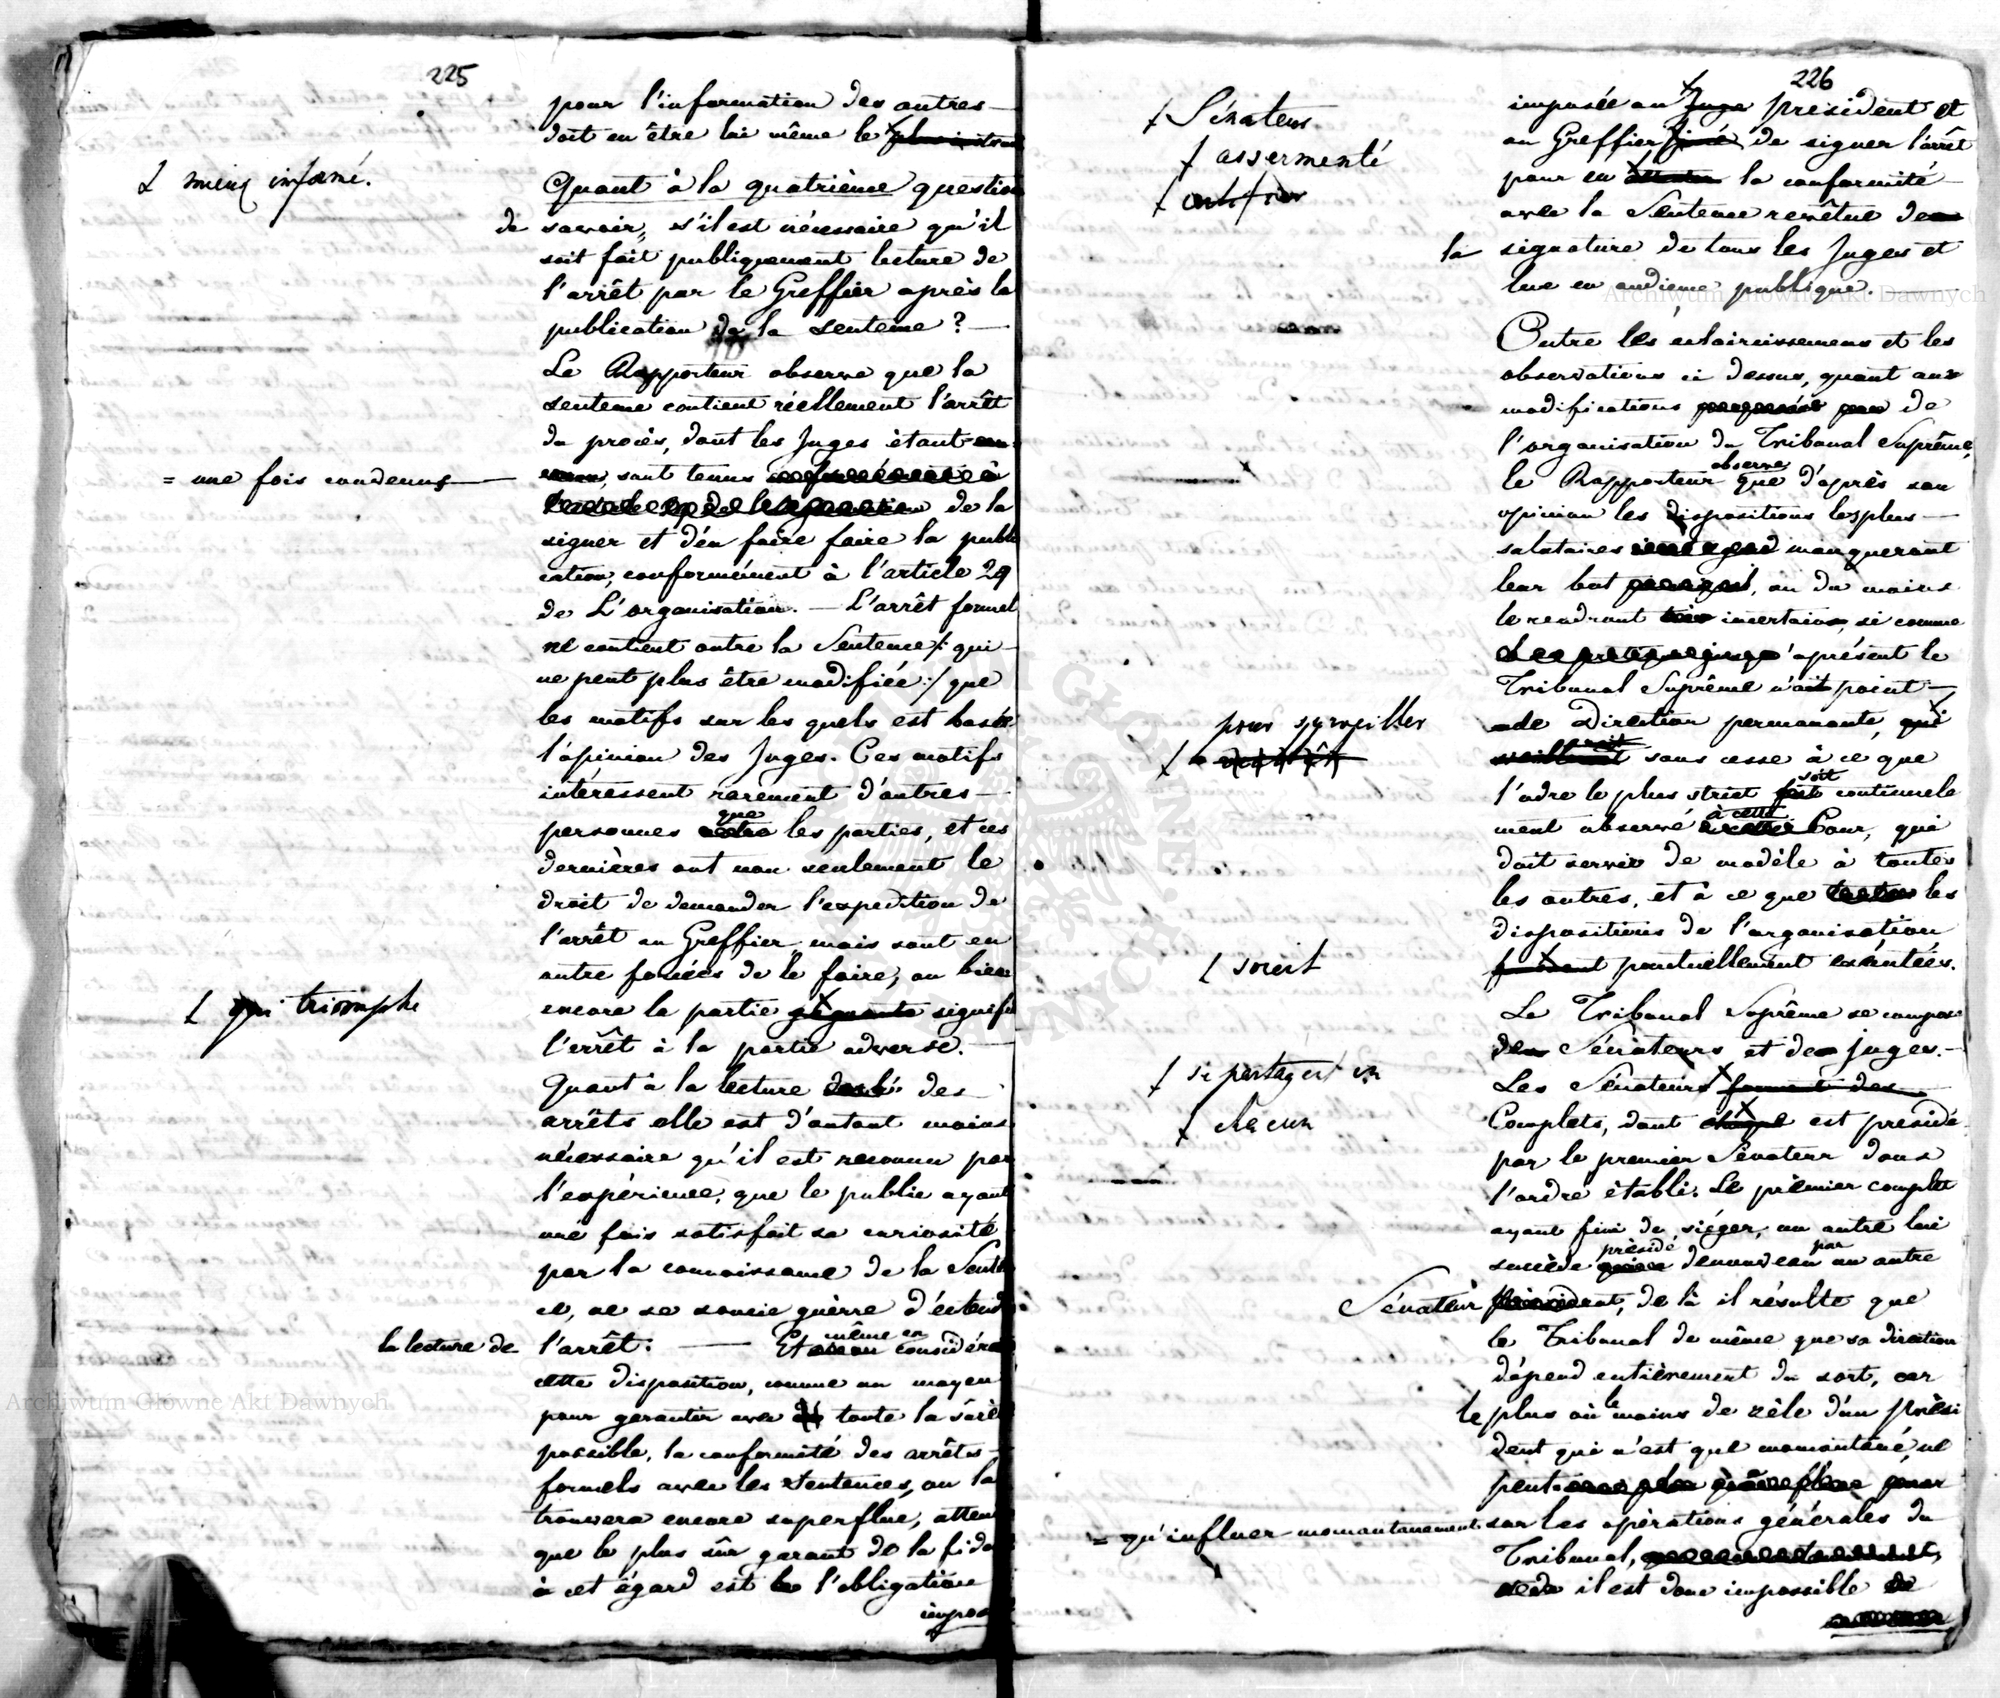 225
pour l'information des autres
doit en être lui même le plus instruit
mieux informé.
Quant à la quatrième question
de savoir, s'il est nécessaire qu'il
soit fait publiquement lecture de
l'arrêt par le Greffier après la
publication de la sentence ?
Le Rapporteur observe que la
sentence contient réellement l'arrêt
du procès, dont les Juges étant
= une fois convenus
sont tenus
de la
signer et d'en faire faire la publi
cation, conformément à l'article 29
de L'organisation. — L'arrêt formel
ne contient outre la Sentence /: qui
ne peut plus être modifiée :/ que
les motifs sur les quels est basée
l'opinion des Juges. Ces motifs
intéressent rarement d'autres
personnes que les parties, et ces
dernières ont non seulement le
droit de demander l'expedition de
l'arrêt au Greffier, mais sont en
outre forcées de le faire, ou bien
encore la partie gagnante signifie
qui triomphe
l'errêt à la partie adverse.
Quant à la lecture des
arrêts elle est d'autant moins
nécessaire qu'il est reconnu par
l'expérience, que le public ayant
une fois satisfait sa curiosité
par la connaissance de la Senten
ce, ne se soucie guèrre d'entendre
la lecture de l'arrêt. — Et même en considérant
cette disposition, comme un moyen
pour garantir avec toute la sûreté
possible, la conformité des arrêts
formels avec les Sentences, on la
trouvera encore superflue, attendu
que le plus sûr garant de la fidé
à cet égard est l'obligation
imposée
226
Sénateur
assermenté
certifier
imposée au Juge président et
au Greffier juré de signer l'arrêt
pour en la conformité
avec la Sentence revêtue de
la signature de tous les Juges et
lue en audience publique.
Outre les eclaircissemens et les
observations ci dessus, quant aux
modifications proposées pour de
l'organisation du Tribunal Suprême,
le Rapporteur observe que d'après son
opinion les dispositions les plus
salutaires manqueront
leur but, ou du moins
le rendront très incertain, si comme
àprésent le
Tribunal Suprême n'ait point
de Direction permanente, qui
pour surveiller
veillerait sans cesse à ce que
l'odre le plus strict soit continuele
ment observé à cette Cour, qui
doit servir de modèle à toutes
les autres, et à ce que toutes les
dispositions de l'organisation
soient
ponctuellement exécutées.
Le Tribunal Suprême se compose
des Sénateurs et de Juges.
Les Sénateurs forment des
se partagent en
Complets, dont chaque est presidé
chacun
par le premier Sénateur dans
l'ordre établi. Le prèmier complet
ayant fini de siéger, un autre lui
succède présidé denouveau par un autre
Sénateur président, de là il résulte que
le Tribunal de même que sa direction
dépend entièrement du sort, car
le plus où le moins de zèle d'un Prèsi
dent qui n'est que momentané, ne
peut
= qu'influer momantanement sur les opèrations générales du
Tribunal,
il est donc impossible de
Archiwum Główne Akt Dawnych
Archiwum Główne Akt Dawnych